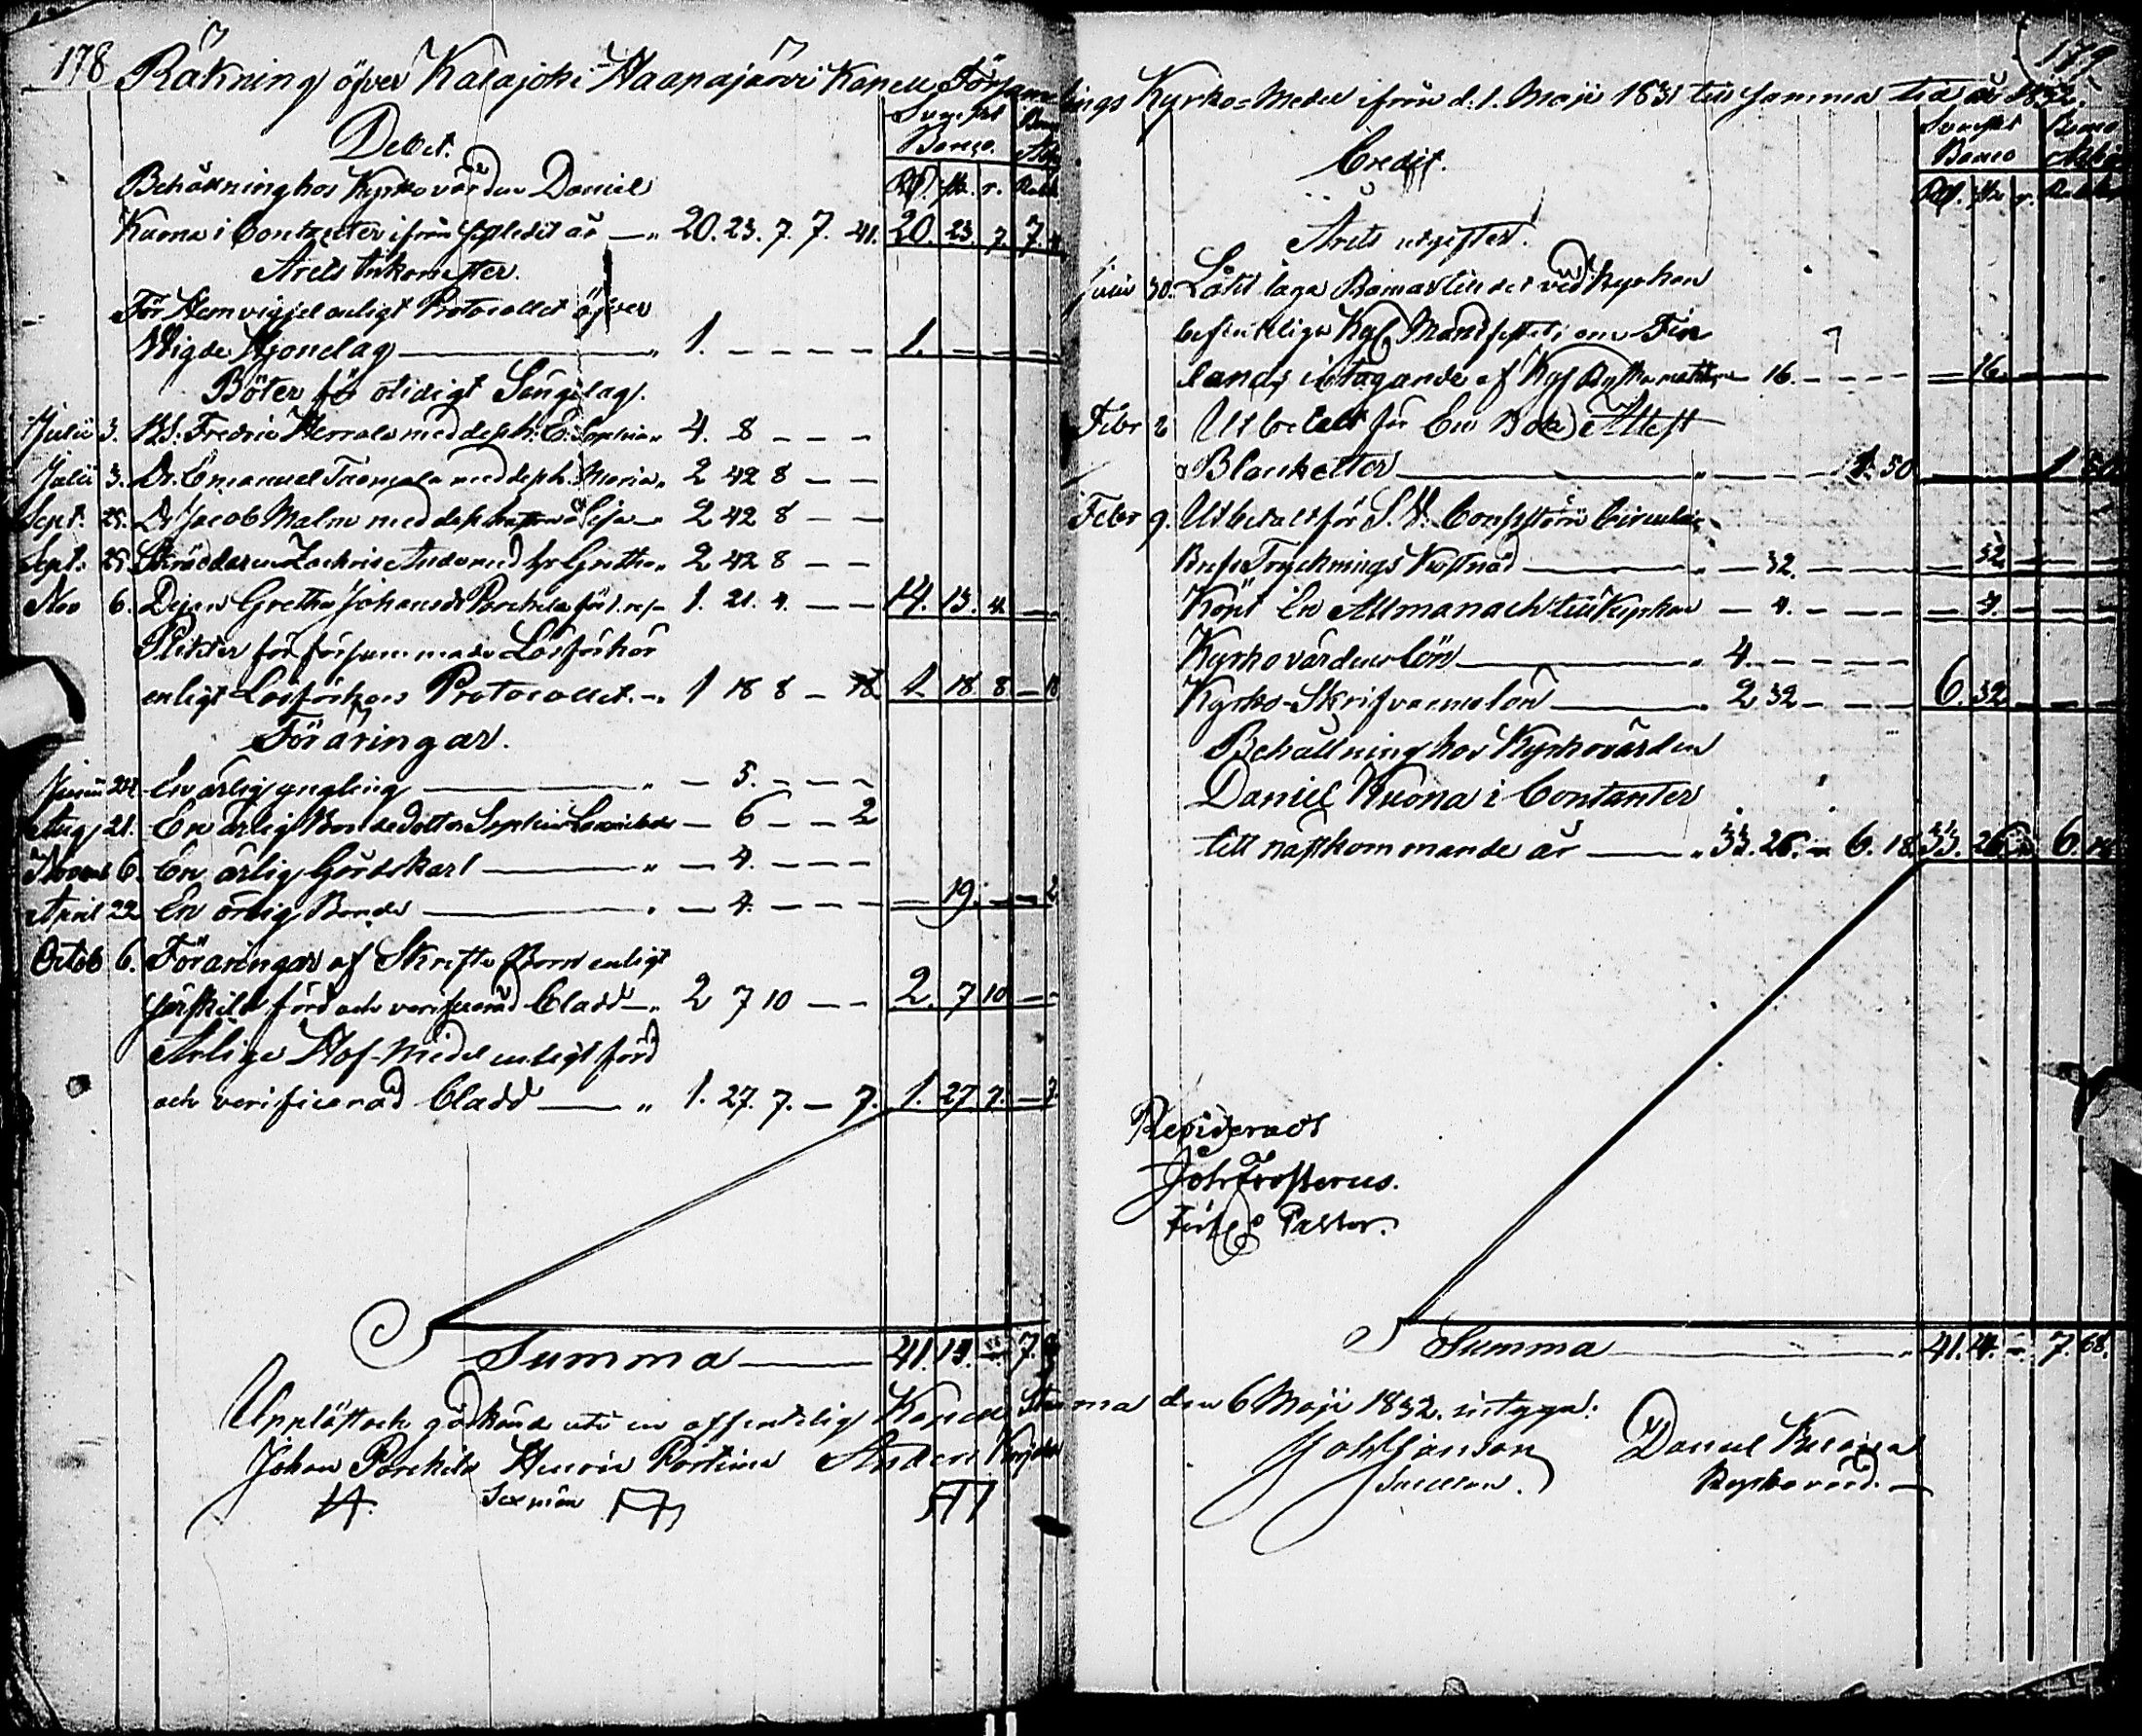 178 Räkning öfver Kalajoki-Haapajärvi Kapell Församlings Kyrko=Medel ifrån d. 1. Maji 1831 till samma tid år 1832. 179
Debet.
Svenskt Banco. Banco
Rd. sk. r. Rubl.
Behållning hos Kyrkovärden Daniel
Kuona i Contanter ifrån sistledit år — " 20. 23. 7. 7. 41. 20. 23. 7. 7.
Årets Inkomster.
För Hemvigsel enligt Protocollet öfver
Wigde Hjonelag — " 1. — — — — 1. — —
Böter för otidigt Sängelag.
Julii 3. Fredric Herrala med des h. " 4. 8 — — —
Julii 3. Dr. Emanuel med des h. Maria " 2 42 8 — —
Sept. 25. Dr. Jacob Malm med des Lisa — 2 42 8 — —
Sept. 25. Skräddaren Zachris med h. Gretha " 2 42 8 — —
Nov 6. Pigan Gretha Johansdr — 1. 21. 4. — — 14. 13. 4. —
Plikter för försummade Läsförhör
enligt Läsförhörs Protocollet — " 1 18 8 — 18 1. 18 8 — 18
Föräringar.
Junii 24 En ärlig yngling — " — 5. — — —
Aug. 21. En ärlig Bondedotter — 6 — — 2
Novemb 6. En ärlig Gårdskarl — " — 4. — — —
April 22 En ärlig Bonde — " — 4. — — — — 19. — — 2
Octob 6. Föräringar af Skrifte Barn enligt
särskild förd och verificerad Cladd — " 2 7 10 — — 2. 7 10 —
Årlige Hof-Medel enligt förd
och verificerad Cladd — " 1. 27. 7. — 7. 1. 27. 7. — 7.
Summa — 41. 19. 7.
Credit.
Svenskt Banco Banco
Rd. sk. r. Rubl.
Årets utgifter.
30. Låtit laga till det vid kyrkan
befintliga Kejs. Manifestet om Fin
lands intagande af — 16. — — — — — 16. — —
Febr 2 Utbetalt för En Bok Attest
Blanketter — " — — — 1. 50 — — — 1 50.
Febr 9. Utbetalt för Circulair
Trycknings Kostnad — " — 32. — — — — 32 — —
Köpt En Allmanach till Kyrkan — 4. — — — — 4. — —
Kyrkovärdens lön — " 4. — — — —
Kyrko-Skrifvarens lön — " 2 32 — — — 6. 32 — —
Behållning hos Kyrkovärden
Daniel Kuona i Contanter
till nästkommande år — " 33. 26. — 6. 18. 33. 26. 6. 18
Revideradt
Joh Frosterus.
Pastor.
Summa — " 41. 14. — 7. 68.
Uppläst och godkänd uti en offentelig Kapell Stämma den 6 Maji 1832. intyga:
Johan Henric Portinus Anders Joh Janson Daniel Kuona
Sexmän Sacellan. Kyrkovärd. —